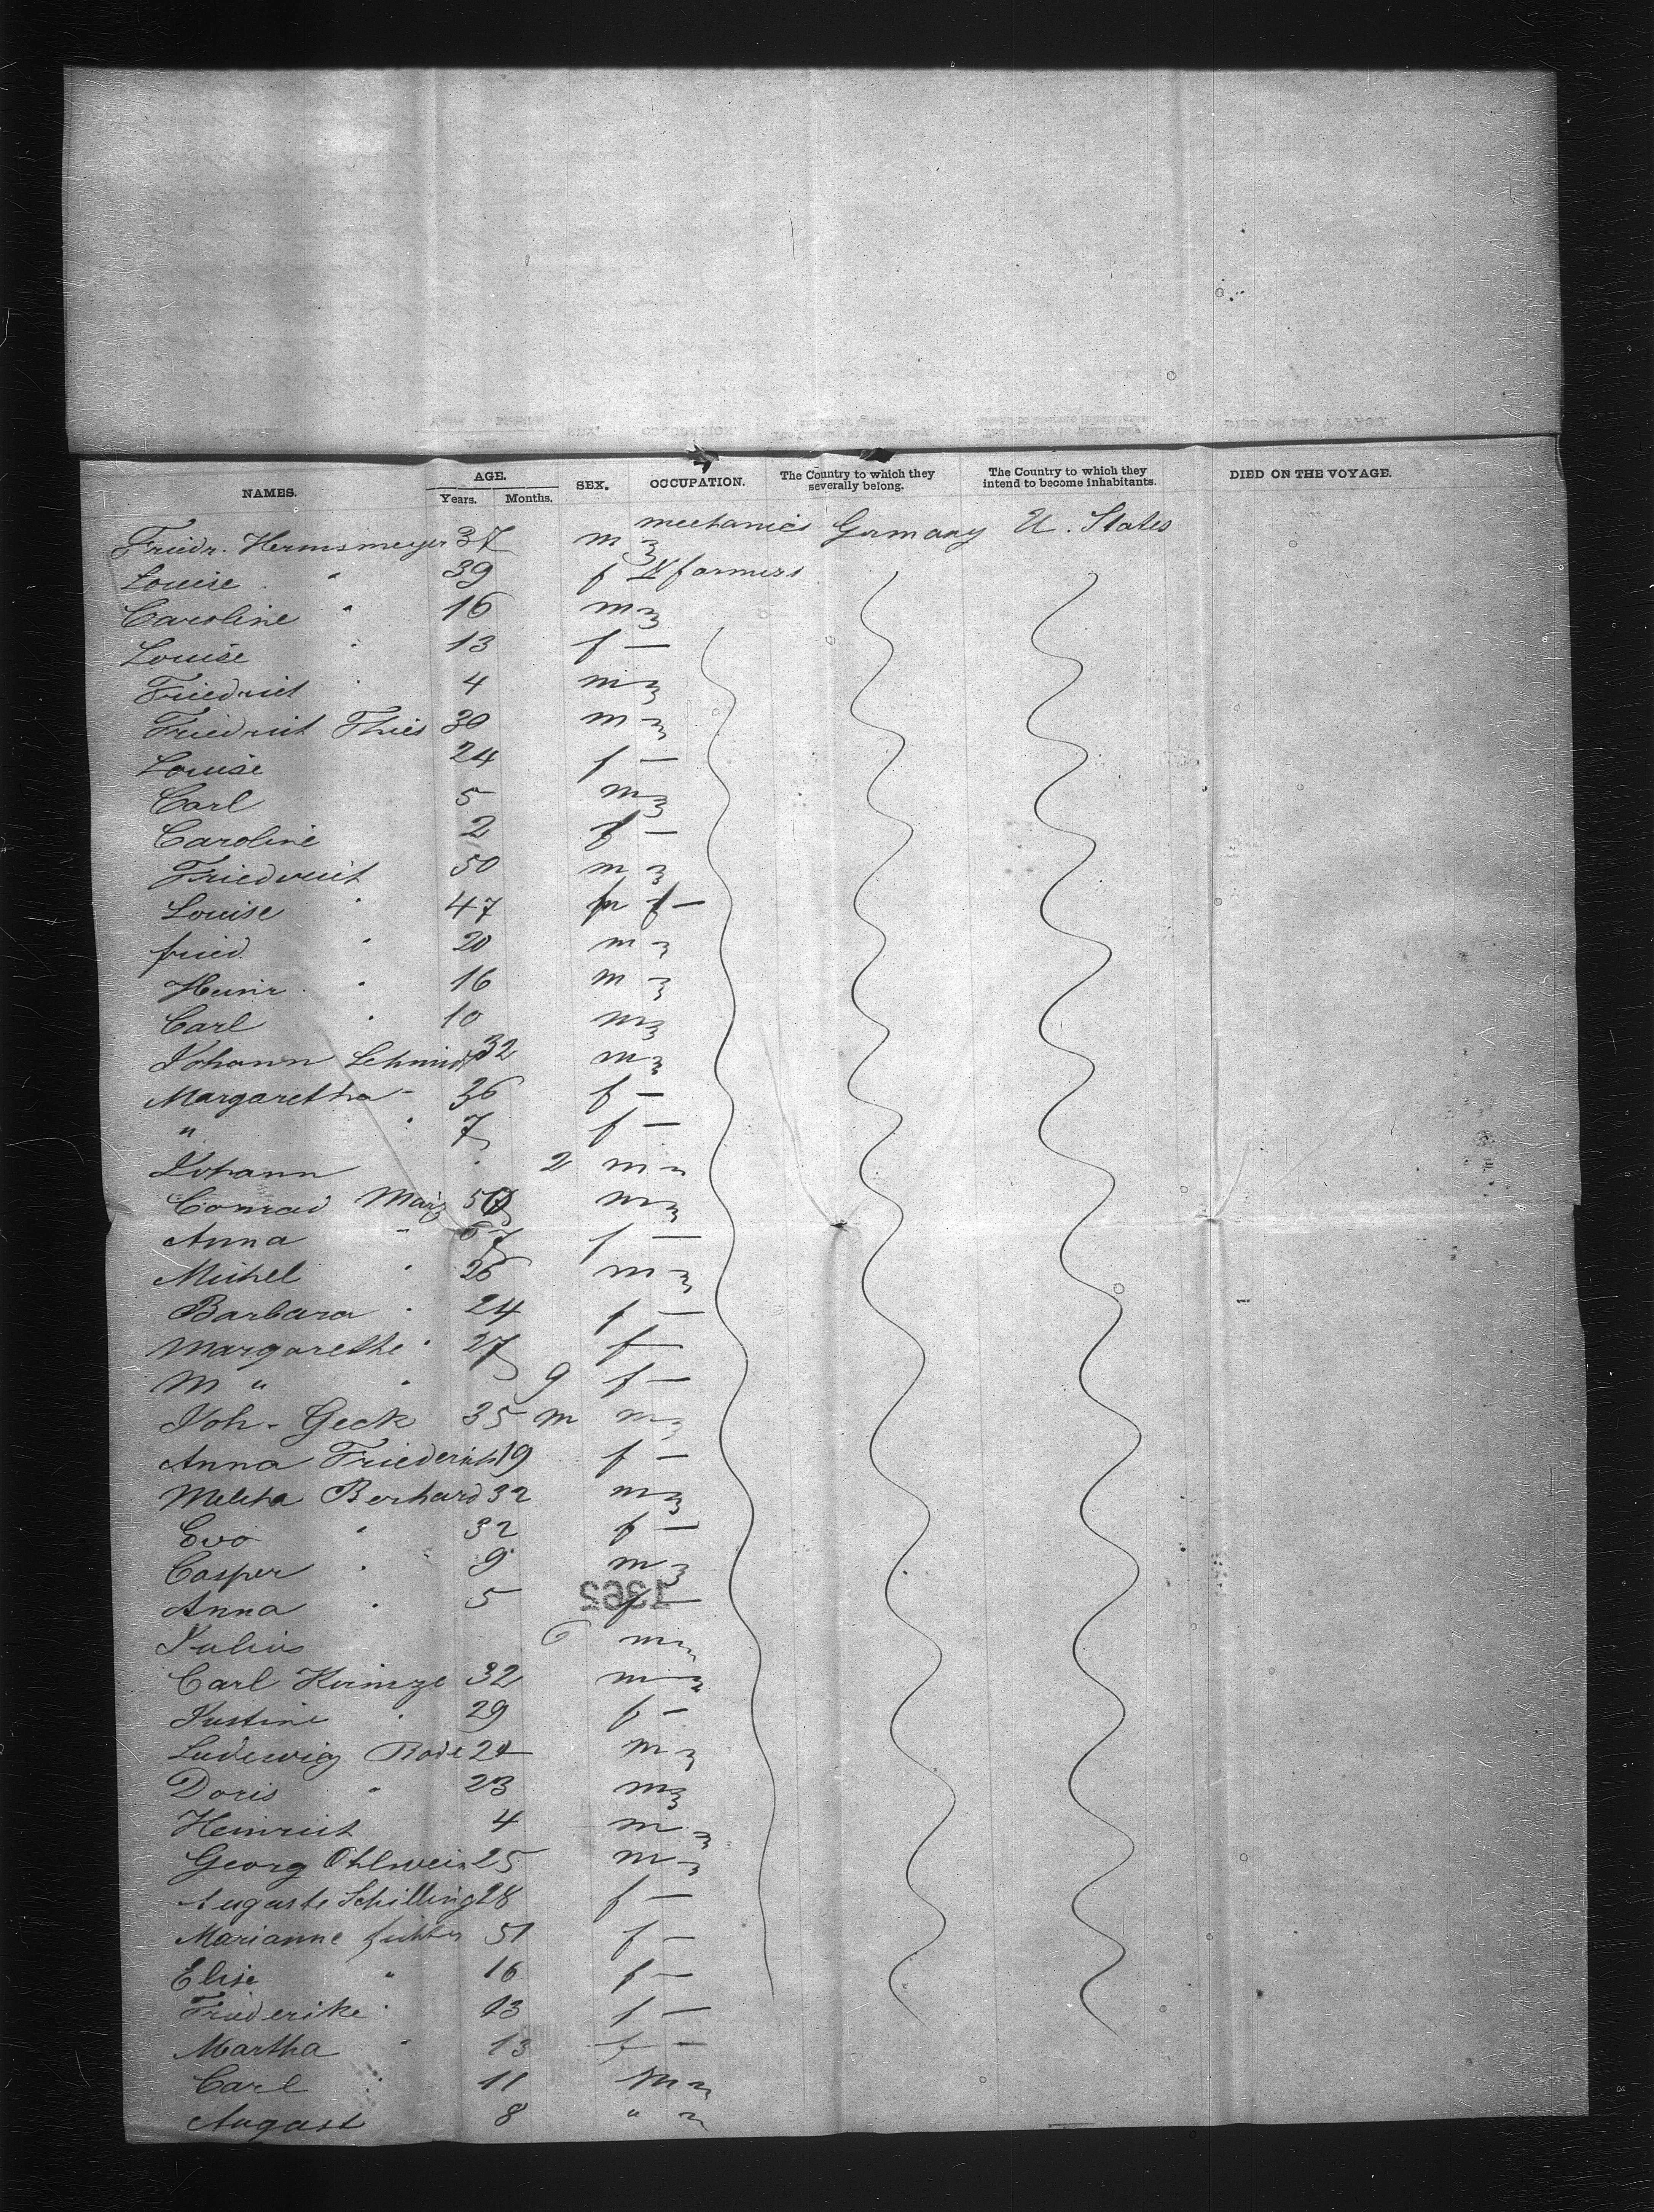 NAMES. AGE. Years. Months. SEX. OCCUPATION. The Country to which they severally belong. The Country to which they intend to become inhabitants. DIED ON THE VOYAGE.
Friedr. Hermsmeyer 37 m mechanics Germany U. States
Louise " 39 f & farmers
Caroline " 16 m
Louise " 13 f —
Friedrich " 4 m
Friedrich Thies 30 m
Louise 24 f —
Carl 5 m
Caroline 2 f —
Friedrich 50 m
Louise " 47 f —
fried. " 20 m
Heinr. " 16 m
Carl " 10 m
Johann Schmidt 32 m
Margaretha " 36 f —
" " 7 f —
Johann " 2 m
Conrad m
Anna " 67 f —
Michel " 26 m
Barbara " 24 f —
Margarethe " 27 f —
M " " 9 f —
Joh. Geck 35 m m
Anna Friederich 19 f —
Berhard 32 m
Eva " 32 f —
Casper " 9 m
Anna " 5 f —
1362
Julius 6 m
Carl 32 m
Justine " 29 f —
Ludewig Bode 24 m
Doris " 23 m
Heinrich 4 m
Georg Ohlwein 25 m
Auguste Schilling 28 f —
Marianne 51 f —
Elise " 16 f —
Friederike " 13 f —
Martha " 13 f —
Carl " 11 m
August 8 "